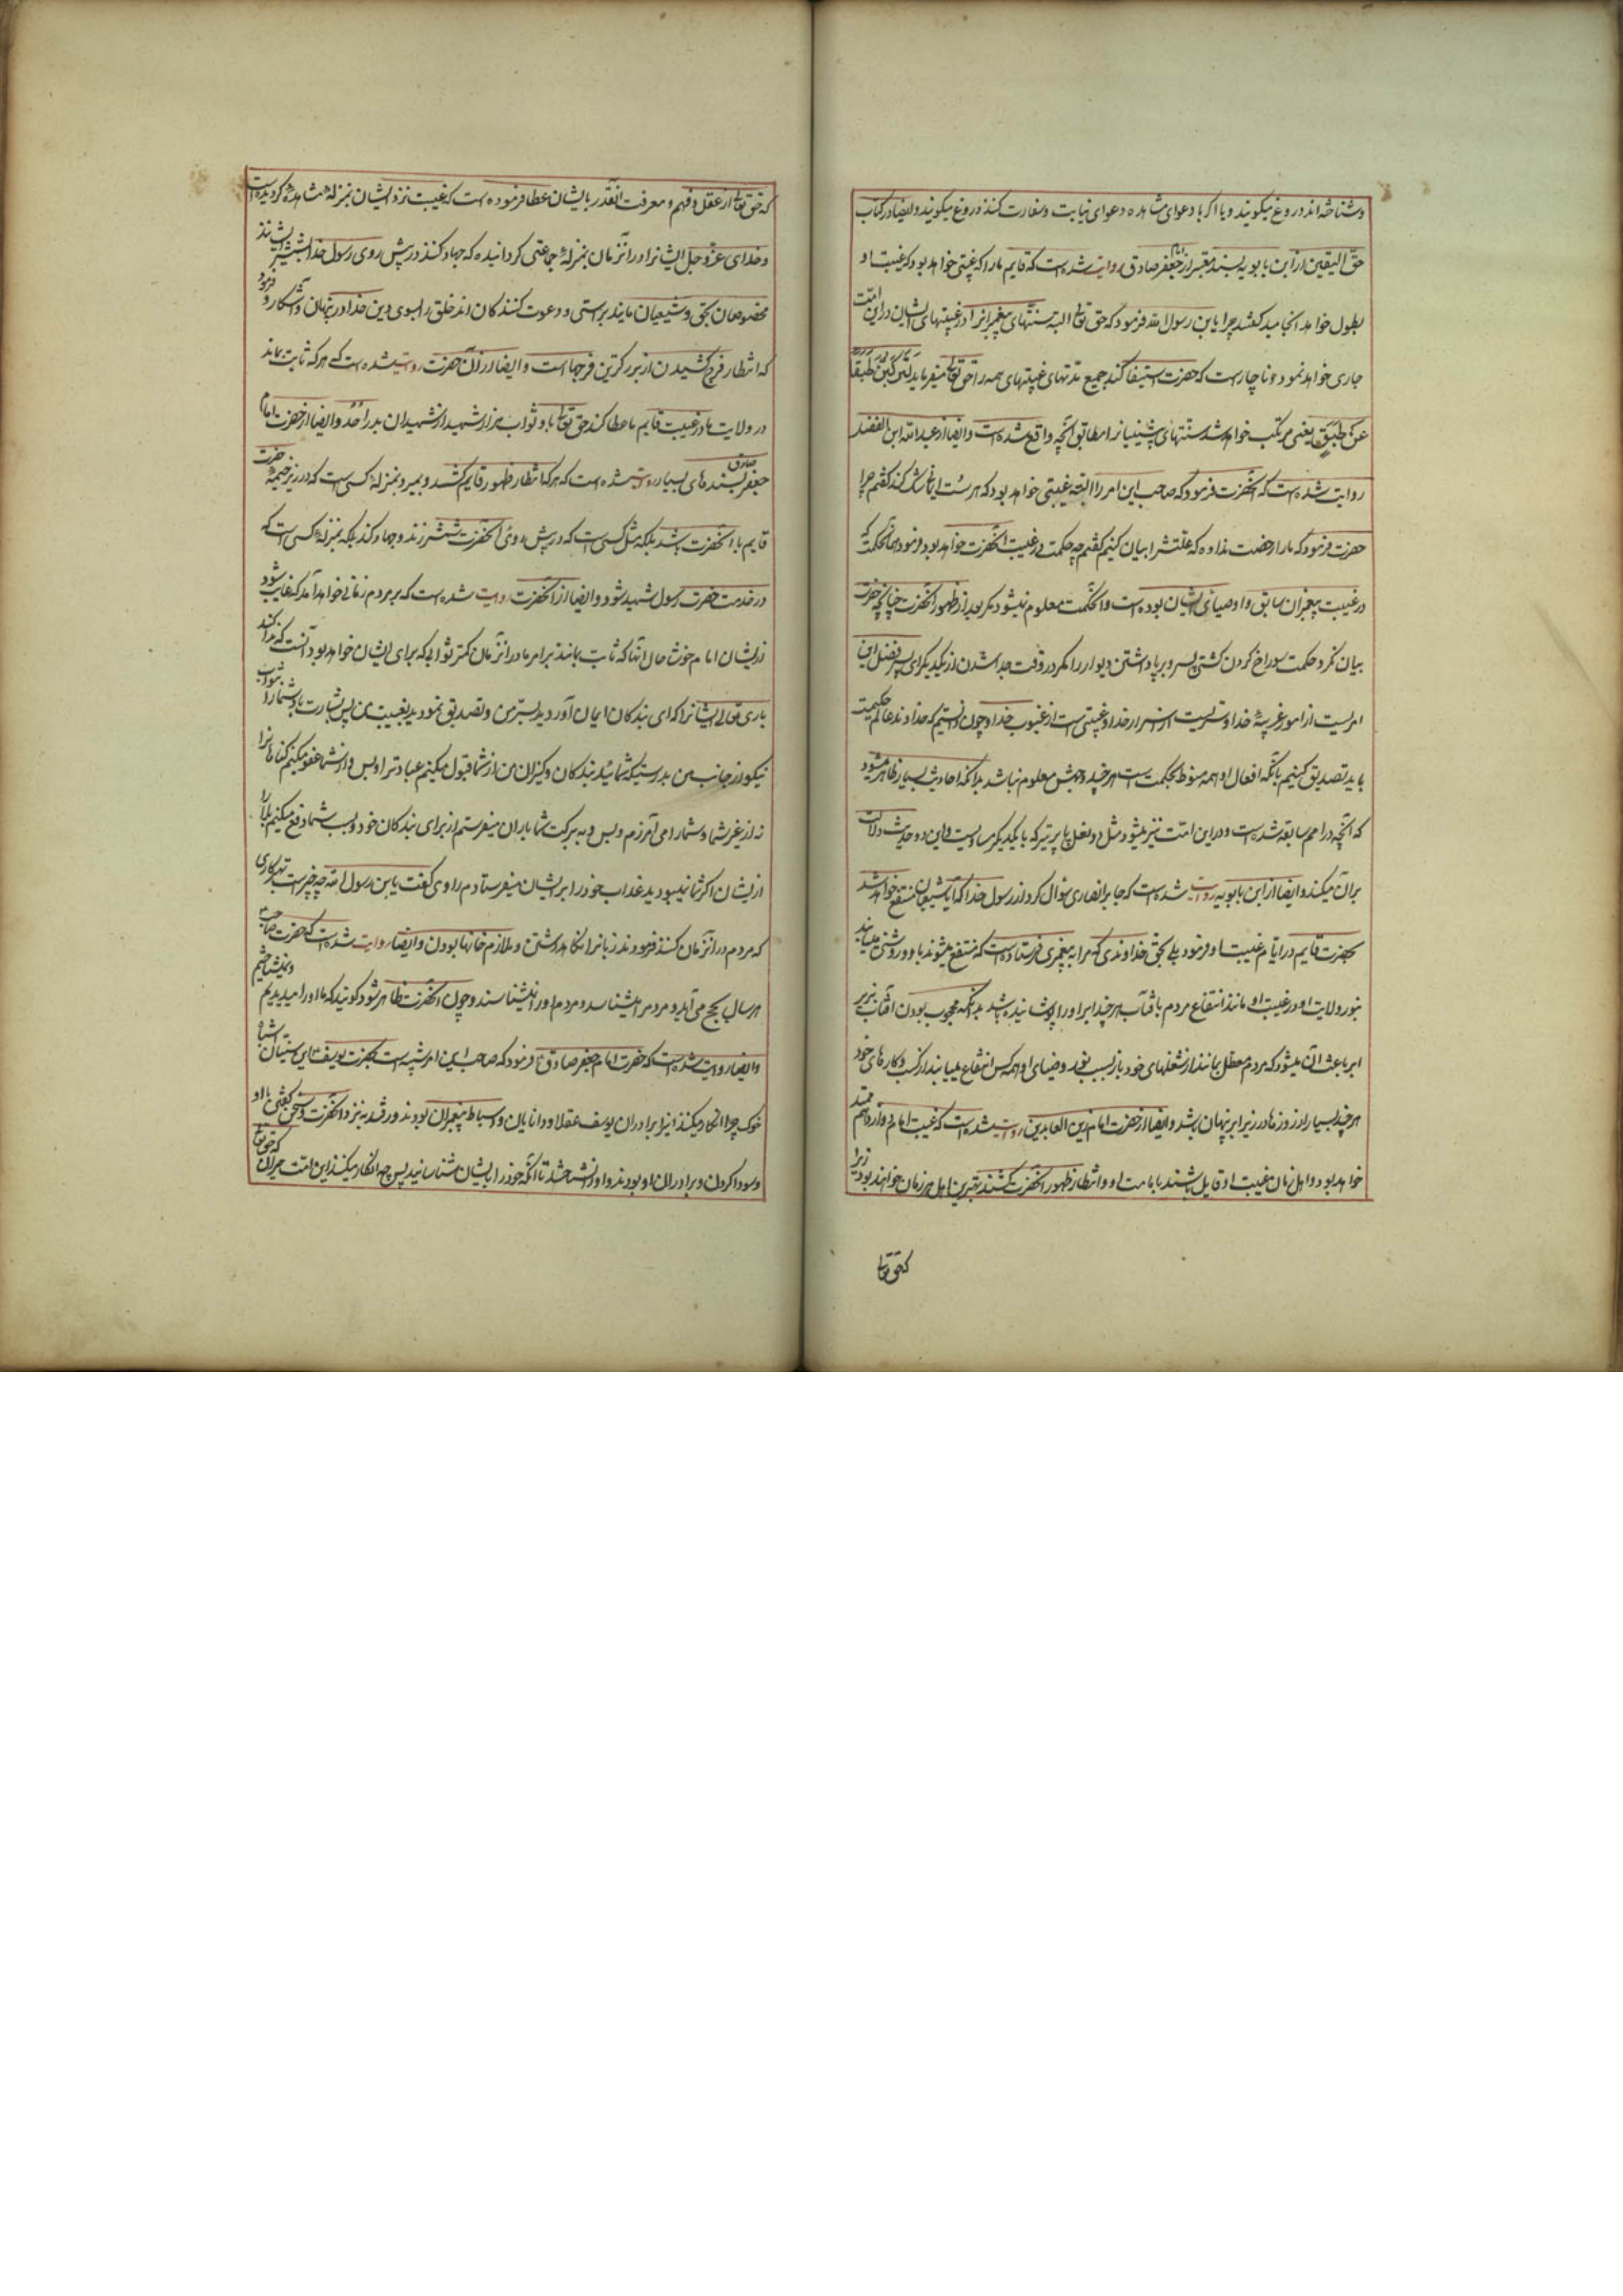 و شناخته‌اند دروغ میکویند و یا اکر با دعوای مشاهده دعوای نیابت و سفارت کنند دروغ میکویند و ایضا در کتاب
حق الیقین از ابن بابویه بسند معتبر از امام جعفر صادق روایت شده است که قایم ما را که غیبتی خواهد بود که غیبت او
بطول خواهد انجامید کفتند چرا یابن رسول الله فرمود که حق تعالی البته سنتهای پیغمبرانرا در غیبتهای ایشان در این امت
جاری خواهد نمود و ناچار است که حضرت استیفا کند جمیع مدتهای غیبتهای همه را حق تعالی میفرماید لترکبن طبقا
عن طبق یعنی مرتکب خواهید شد سنتهای پیشینیانرا مطابق آنچه واقع شده است و ایضا از عبدالله ابن الفضل
روایت شده است که آنحضرت فرمود که صاحب این امر را البته غیبتی خواهد بود که هر سست ایمانی شک کند کفتم چرا
حضرت فرمود که ما را رخصت نداده که علتش را بیان کنیم کفتم چه حکمت در غیبت آنحضرت خواهد بود فرمود همان حکمت که
در غیبت پیغمبران سابق و اوصیای ایشان بوده است و آنحکمت معلوم نمیشود مکر بعد از ظهور آنحضرت چنانچه حضرت
بیان نکرد حکمت سوراخ کردن کشتی و پسر و برپا داشتن دیوار را مکر در وقت جدا شدن از یکدیکر ای پسر فضل این
امریست از امور غریبهٔ خدا و سریست از اسرار خدا و غیبتی است از غیوب خدا و چون دانستیم که خداوند عالم حکیمست
باید تصدیق کنیم بآنکه افعال او همه منوط بحکمت است هرچند وجهش معلوم نباشد بدانکه احادیث بسیار ظاهر میشود
که آنچه در امم سابقه شده است در این امت نیز میشود مثل دو نعل یا پر تیر که با یکدیکر مساویست و این دو حدیث دلالت
بر آن میکند و ایضا از ابن بابویه روایت شده است که جابر انصاری سؤال کرد از رسول خدا که آیا شیعیان منتفع خواهند شد
بحضرت قایم در ایام غیبت او فرمود بلی بحق خداوندی که مرا به پیغمبری فرستاده است که منتفع میشوند باو و روشنی مییابند
بنور ولایت او در غیبت او مانند انتفاع مردم بآفتاب هرچند ابر او را پوشانیده باشد بدانکه محجوب بودن آفتاب بزیر
ابر باعث آن میشود که مردم معطل بمانند از شغلهای خود باز بسبب نور و ضیای او همه کس انتفاع مییابند از کسب و کارهای خود
هرچند بسیار از روزها در زیر ابر پنهان باشد و ایضا از حضرت امام زین العابدین روایت شده است که غیبت امام دوازدهم ممتد
خواهد بود و اهل زمان غیبت او قایل باشند بامامت او و انتظار ظهور آنحضرت کشند بهترین اهل هر زمان خواهند بود زیرا
که حق تعالی
که حق تعالی از عقل و فهم و معرفت آنقدر بایشان عطا فرموده است که غیبت نزد ایشان بمنزلهٔ مشاهده کردیده است
و خدای عز و جل ایشانرا در آنزمان بمنزلهٔ جماعتی کردانیده که جهاد کنند در پیش روی رسول خدا بشمشیر ایشانند
مخلصان بحق و شیعیان مایند براستی و دعوت کنندکان اند خلق را بسوی دین خدا در پنهان و آشکار و فرمود
که انتظار فرج کشیدن از بزرکترین فرجها است و ایضا از آن حضرت روایت شده است که هر که ثابت بماند
در ولایت ما در غیبت قایم ما عطا کند حق تعالی باو ثواب هزار شهید از شهیدان بدر و احد و ایضا از حضرت امام
جعفر صادق بسندهای بسیار روایت شده است که هر که انتظار ظهور قایم کشد و بمیرد بمنزلهٔ کسی است که در زیر خیمهٔ حضرت
قایم با آنحضرت باشد بلکه مثل کسی است که در پیش روی آنحضرت شمشیر زند و جهاد کند بلکه بمنزلهٔ کسی است که
در خدمت حضرت رسول شهید شود و ایضا از آنحضرت روایت شده است که بر مردم زمانی خواهد آمد که غایب شود
از ایشان امام خوشا حال آنها که ثابت بمانند بر امر ما در آنزمان کمتر ثوابیکه برای ایشان خواهد بود آنست که ندا کند
باری تعالی ایشانرا که ای بندکان ایمان آوردید بسر من و تصدیق نمودید بغیبت من پس بشارت باد شما را بثواب
نیکو از جانب من بدرستیکه شمائید بندکان و کنیزان من از شما قبول میکنم عبادت را و بس و از شما عفو میکنم کناهانرا
نه از غیر شما و شما را می آمرزم و بس و به برکت شما باران میفرستم از برای بندکان خود و بسبب شما دفع میکنم بلا را
از ایشان اکر شما نمیبودید عذاب خود را بر ایشان میفرستادم راوی کفت یابن رسول الله چه چیز است بهتر کاری
که مردم در آنزمان کنند فرمودند زبانرا نکاهداشتن و ملازم خانها بودن و ایضا روایت شده است که حضرت صاحب
هر سال بحج می آید و مردمرا میشناسد و مردم او را نمیشناسند و چون آنحضرت ظاهر شود کویند که ما او را میدیدیم و نمیشناختیم
و ایضا روایت شده است که حضرت امام جعفر صادق فرمود که صاحب این امر شبیه است بحضرت یوسف این سنیان اشباه
خوک چرا انکار میکنند این را برادران یوسف عقلا و دانایان و اسباط پیغمبران بودند و رفتند به نزد آنحضرت و سخن کفتن با او
و سودا کردن و برادران او بودند و او را نشناختند تا آنکه خود را بایشان شناسانید پس چه انکار میکنند این امت حیران که حق تعالی